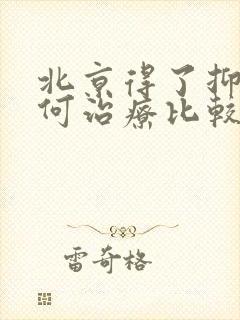 北京得了抑
何治療比較
雷奇格